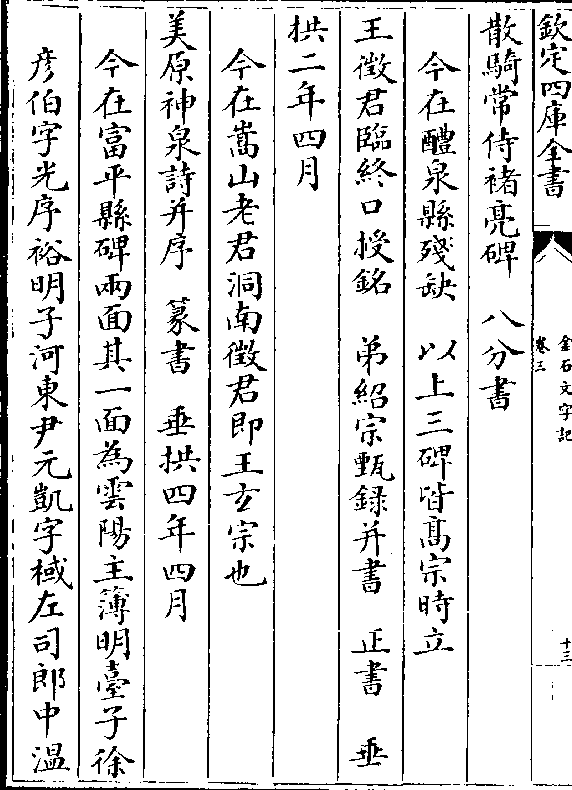 欽定四庫全書
金石文字記
卷三
十三
散騎常侍褚亮碑　八分書
今在醴泉縣殘缺　以上三碑皆高宗時立
王徵君臨終口授銘　弟紹宗甄録并書　正書　垂
拱二年四月
今在嵩山老君洞南徵君即王玄宗也
美原神泉詩并序　篆書　垂拱四年四月
今在富平縣碑兩面其一面為雲陽主簿明臺子徐
彦伯字光序裕明子河東尹元凱字棫左司郎中溫